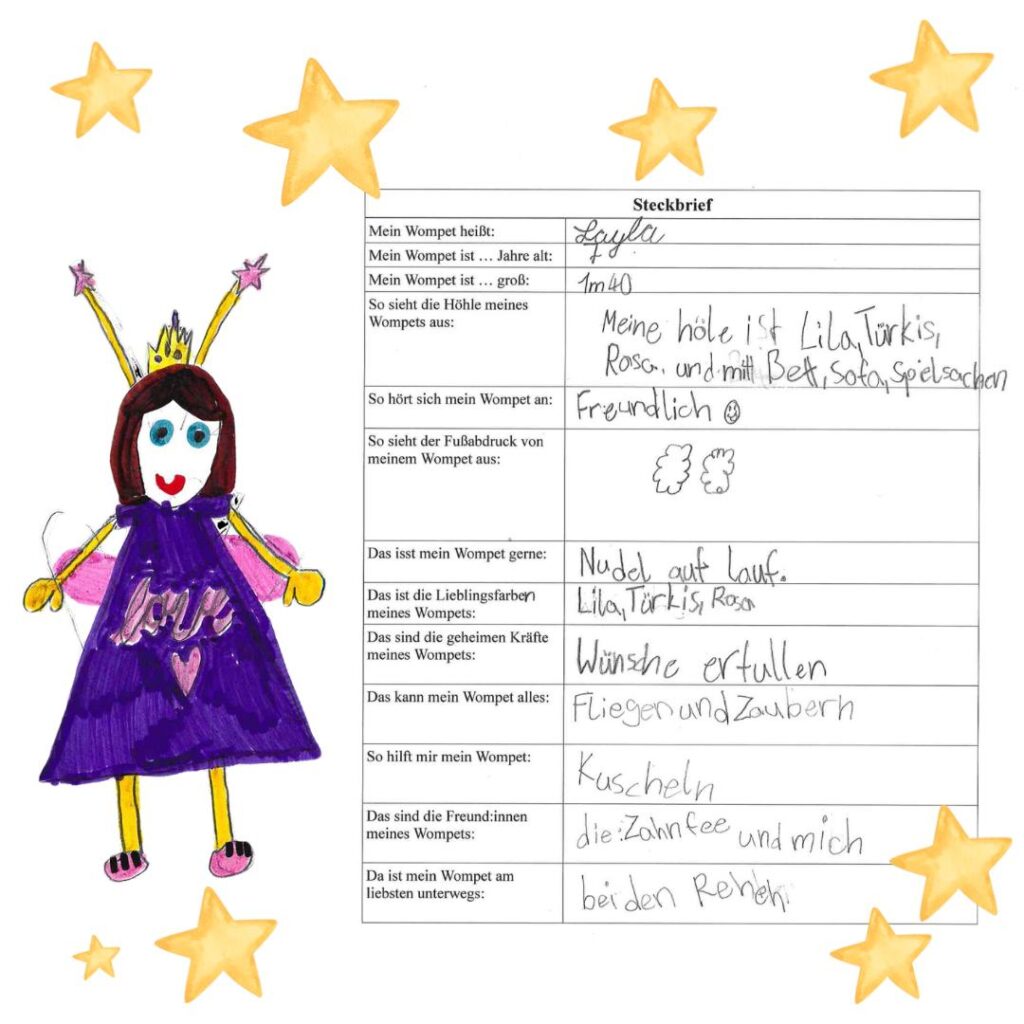 Steckbrief
Mein Wompet heißt: Layla
Mein Wompet ist … Jahre alt: 7
Mein Wompet ist … groß: 1m40
So sieht die Höhle meines
Wompets aus:
Meine höle ist Lila, Türkis,
Rosa. und mitt Bett, Sofa, Spielsachen
So hört sich mein Wompet an: Freundlich
So sieht der Fußabdruck von
meinem Wompet aus:
Das isst mein Wompet gerne: Nudel auf lauf.
Das ist die Lieblingsfarben
meines Wompets:
Lila, Türkis, Rosa
Das sind die geheimen Kräfte
meines Wompets:
Wünsche erfullen
Das kann mein Wompet alles: Fliegen und Zaubern
So hilft mir mein Wompet: Kuscheln
Das sind die Freund:innen
meines Wompets:
die Zahnfee und mich
Da ist mein Wompet am
liebsten unterwegs:
bei den
love